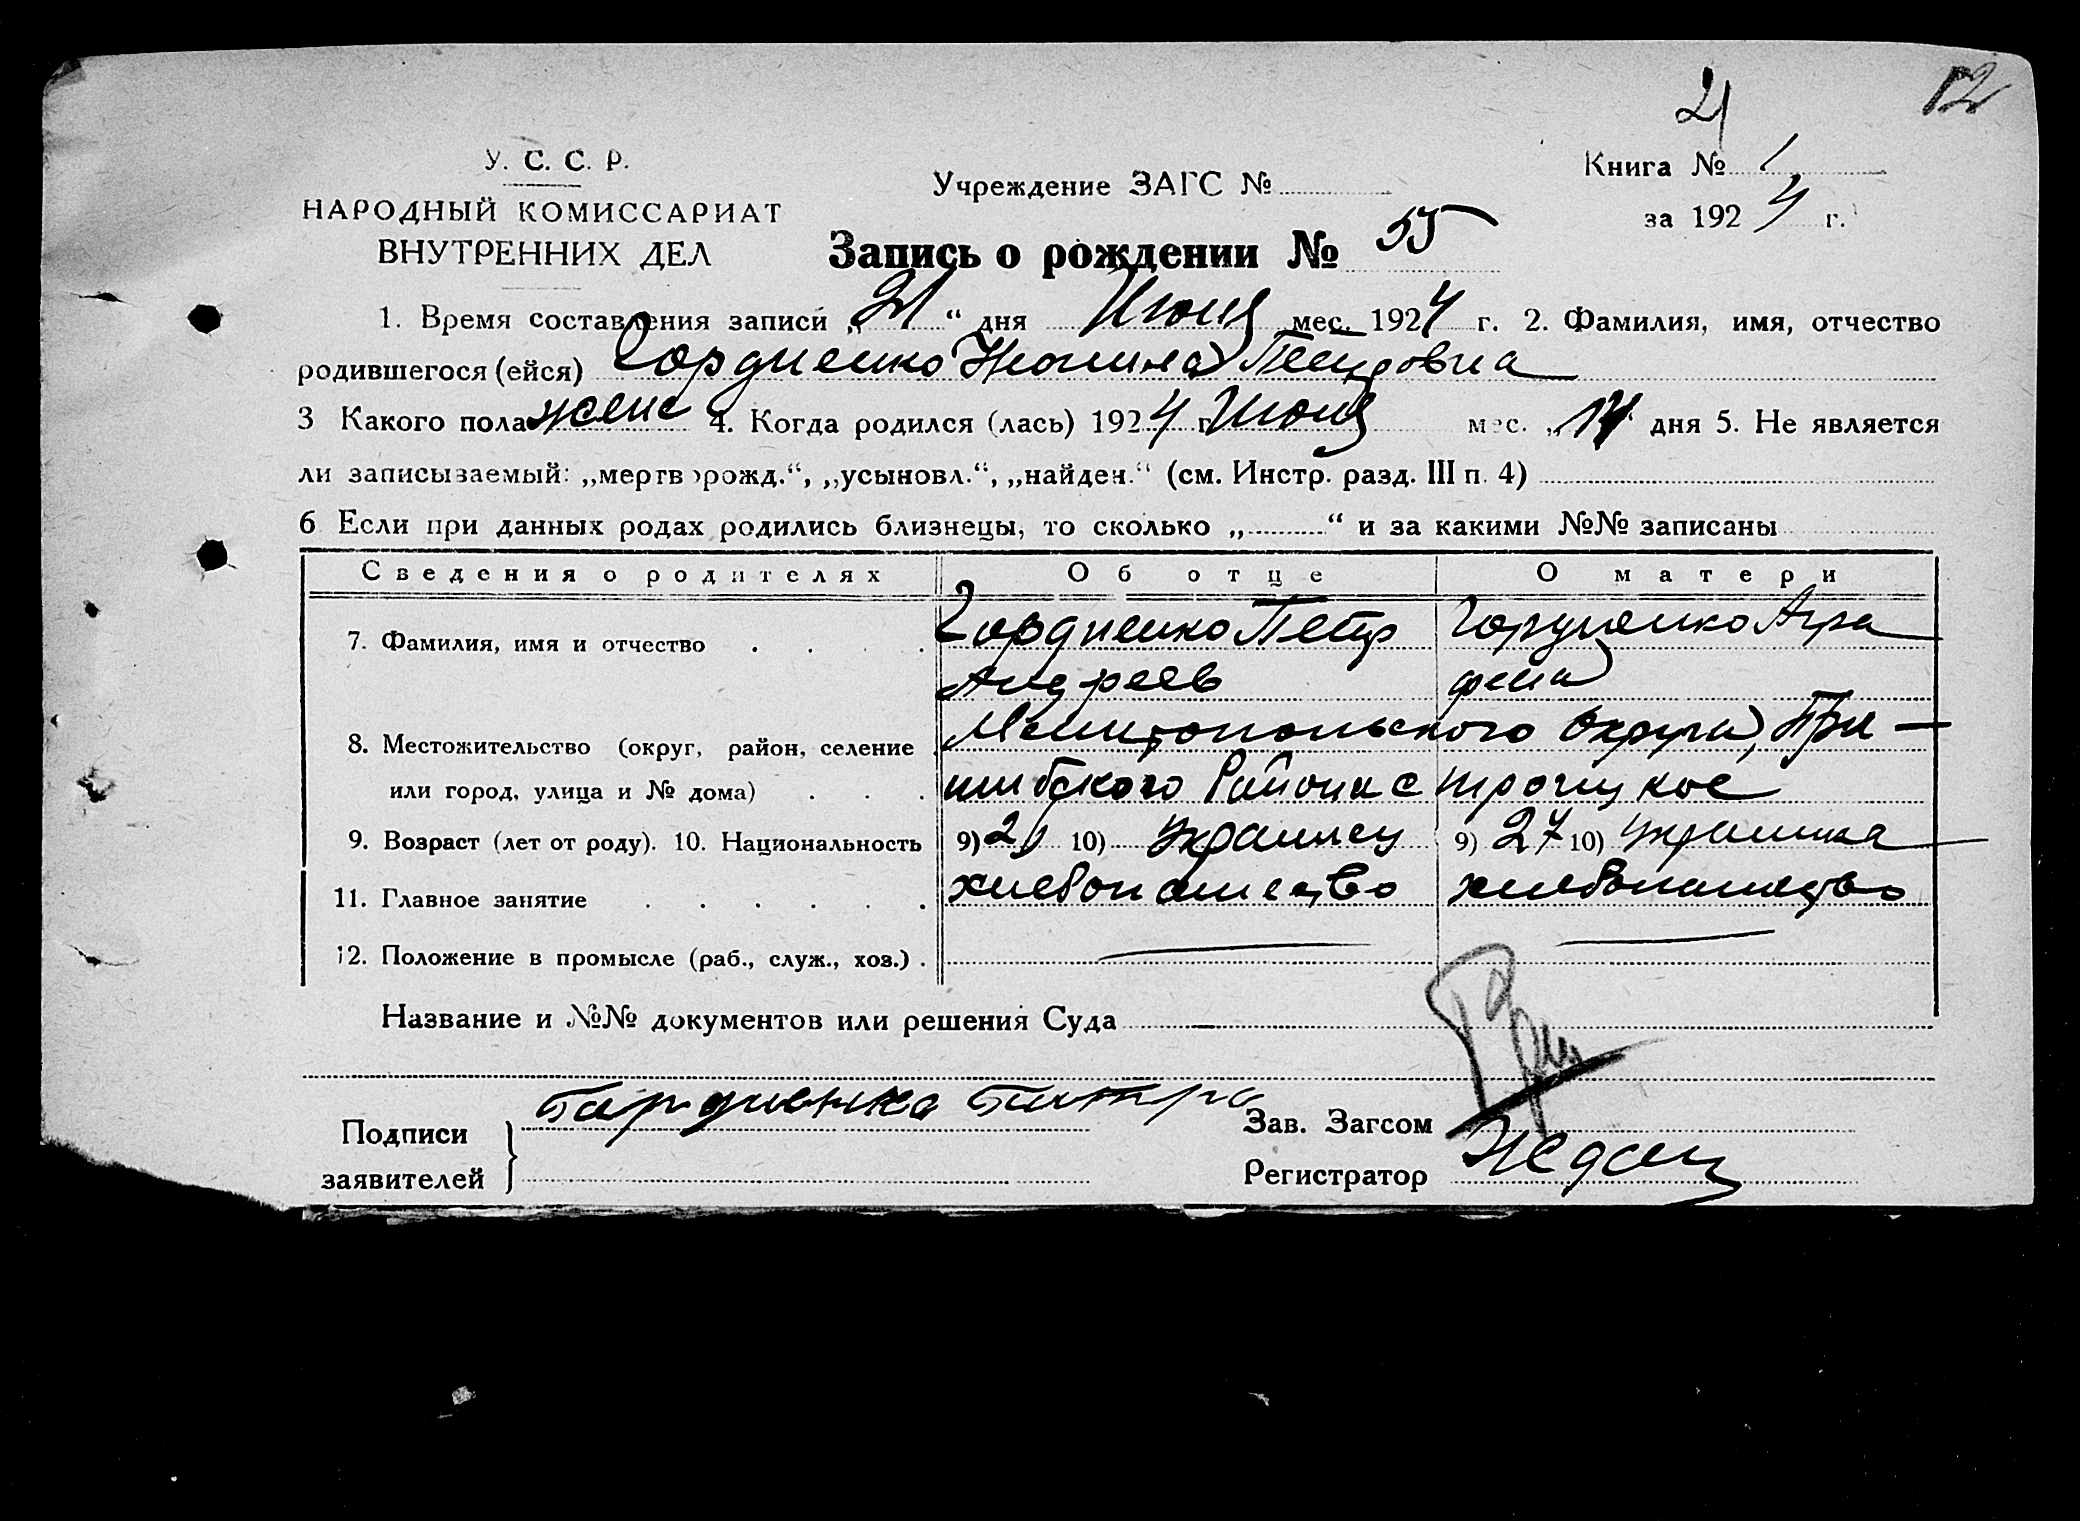 21
12
У. С. С. Р.
НАРОДНЫЙ КОМИССАРИАТ
ВНУТРЕННИХ ДЕЛ
Учреждение ЗАГС №
Книга № 1
за 1924 г.
Запись о рождении № 55
1. Время составления записи „21“ дня Июня мес. 1924 г. 2. Фамилия, имя, отчество
родившегося (ейся) Гордиенко Петровна
3 Какого пола женс 4. Когда родился (лась) 1924 г. Июня мес. „14“ дня 5. Не является
ли записываемый: „мертворожд.“, „усыновл.“, „найден.“ (см. Инстр. разд. III п. 4)
6 Если при данных родах родились близнецы, то сколько „ “ и за какими №№ записаны
Сведения о родителях Об отце О матери
7. Фамилия, имя и отчество Гордиенко Петр Гордиенко Агра
Андреев фена
8. Местожительство (округ, район, селение Мелитопольского Округа, При-
или город, улица и № дома) шибского Района с Троицкое
9. Возраст (лет от роду). 10. Национальность 9) 10) Украинец 9) 27 10) Украинка
11. Главное занятие хлебопашество хлебопашество
12. Положение в промысле (раб., служ., хоз.)
Название и №№ документов или решения Суда
Подписи
заявителей
Гардиенка Питро
Зав. Загсом
Регистратор